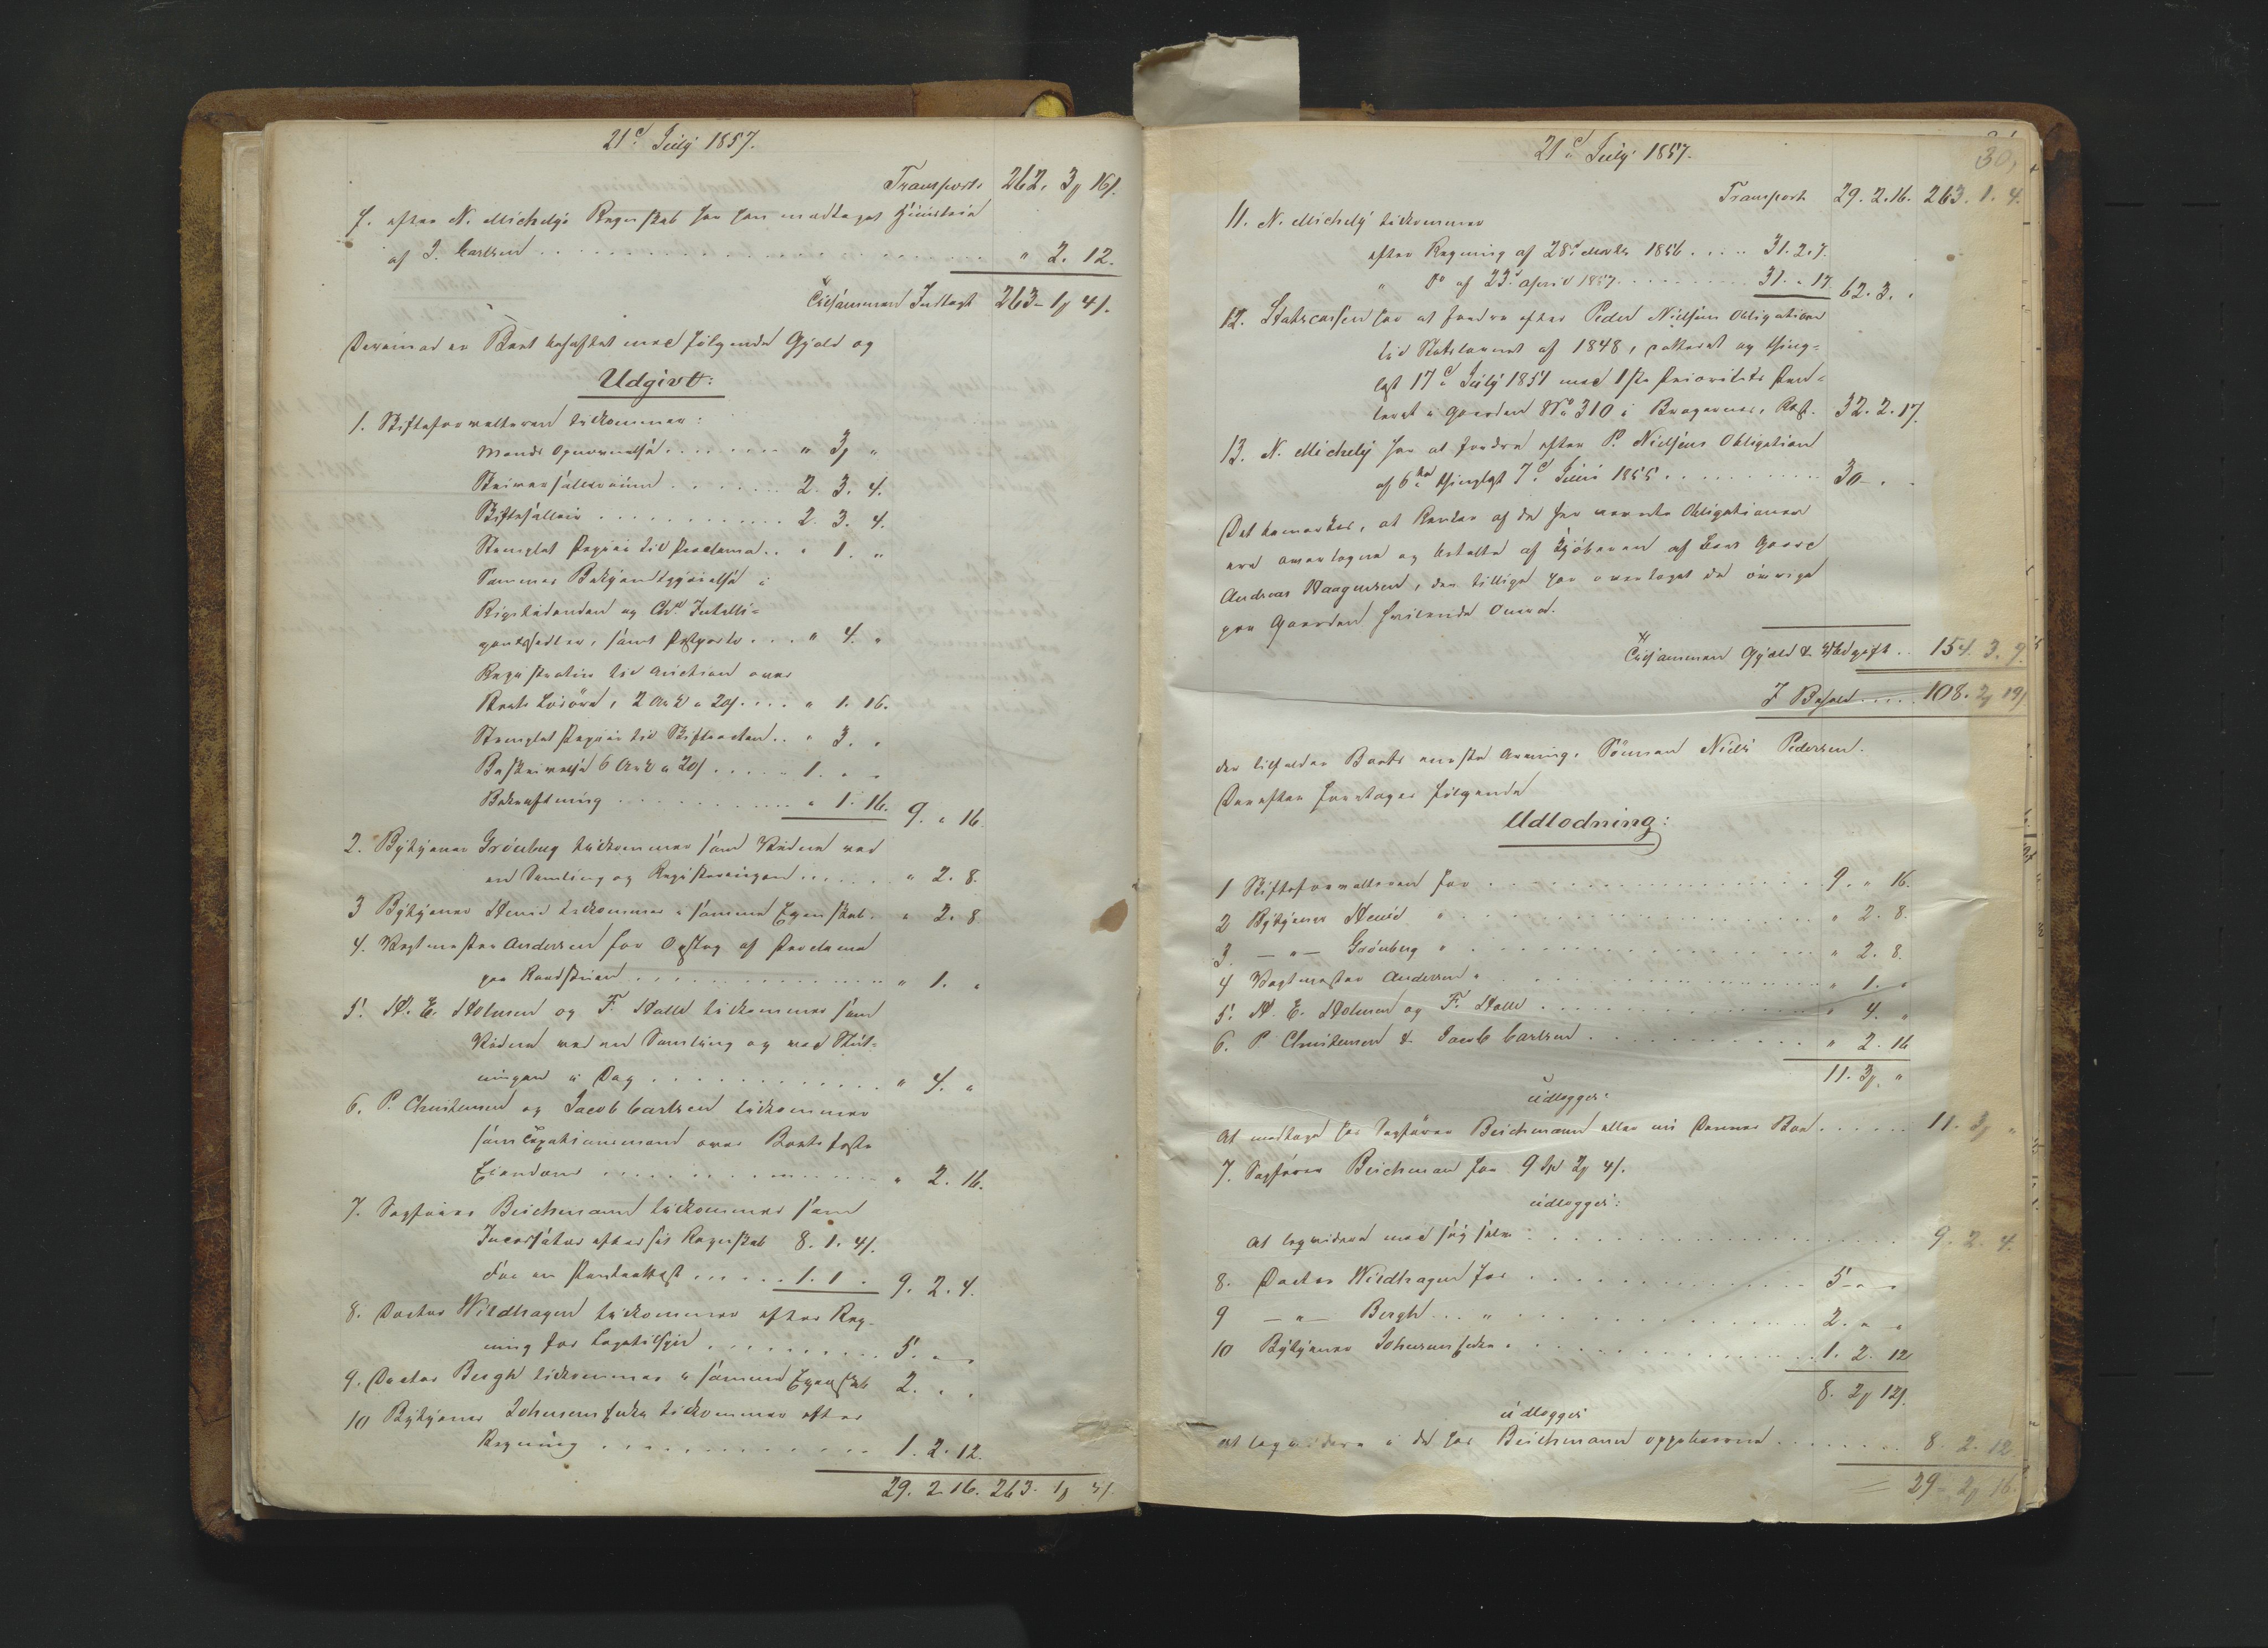 21d July 1857.
Transport 262. 3/ 16/.
7. efter N. Michelys Regnskab har han modtaget Huusleie
af J. Carlsen . . . . . . . . " 2. 12.
Tilsammen Indtægt 263 - 1/ 4/.
Derimod er Boet behæftet med følgende Gjæld og
Udgivt:
1. Skifteforvalteren tilkommer:
Mands Opnævnelse . . . . . " 3/ "
Skriversallarium . . . . . 2. 3. 4.
Skiftesallair . . . . . 2. 3. 4.
Stemplet Papiir til Proclama . . " 1. "
Sammes Bekjendtgjørelse i
Rigstidenden og Chra Intelli=
gentssedler, samt Postporto . . . " 4. "
Registratur til Auction over
Boets Løsøre, 2 Ark a 20/. . . . " 1. 16.
Stemplet Papiir til Skifteacten . . " 3. "
Beskrivelse 6 Ark a 20/ . . . . . 1. " "
Bekræftning . . . . . " 1. 16. 9. " 16.
2. Bytjener Grönberg tilkommer som Vidne ved
en Samling og Registreringen . . . . . " 2. 8.
3 Bytjener Svend tilkommer i samme Egenskab. " 2. 8
4. Vagtmester Andersen for Opslag af Proclama
paa Raadstuen . . . . . " 1. "
5. H. E. Holmsen og F. Halle tilkommer som
Vidner ved en Samling og ved Slut=
ningen i Dag . . . . . " 4. "
6. P. Christensen og Jacob Carlsen tilkommer
som Taxationsmænd over Boets faste
Eiendom . . . . . " 2. 16.
7. Sagfører Beichmann tilkommer som
Incassator efter sit Regnskab 8. 1. 4/.
for en Panteattest . . . . . 1. 1 . 9. 2. 4.
8. Doctor Wildhagen tilkommer efter Reg-
ning for Lægetilsyn . . . . . 5. " "
9. Doctor Bergh tilkommer i samme Egenskab 2. " "
10 Bytjener Johnsens Enke tilkommer efter
Regning . . . . . 1. 2. 12.
29. 2. 16. 263. 1/ 4/
21d July 1857.
30,
Transport 29. 2. 16. 263. 1. 4.
11. N. Michely tilkommer
efter Regning af 28d Marts 1856 . . . . . 31. 2. 7.
" Do af 23d April 1857 . . . . . 31. " 17. 62. 3. "
12. Statscassen har at fordre efter Peder Nielsens Obligation
til Statslaanet af 1848, dateret og thing=
læst 17d July 1851 med 1ste Prioritets Pan=
teret i Gaarden No 310 i Bragernes, Rest. 32. 2. 17.
13. N. Michely har at fordre efter P. Nielsens Obligation
af 6te thinglæst 7d Juni 1855 . . . . . 30 - . -
Det bemærkes, at Renter af de her nævnte Obligationer
ere overtagne og betalte af Kjøberen af Boets Gaard
Andreas Haagensen, der tillige har overtaget de øvrige
paa Gaarden hvilende Onera.
Tilsammen Gjæld & Udgift . . 154. 3. 9.
I Behold . . . . . 108. 2/ 19/
der tilfalder Boets eneste Arving, Sønnen Niels Pedersen.
Derefter foretages følgende
Udlodning:
1 Skifteforvalteren for . . . . . 9. " 16.
2 Bytjener Svend " . . . . . " 2. 8.
3. - " - Grönberg " . . . . . " 2. 8.
4 Vagtmester Andersen " . . . . . " 1. "
5. H. E. Holmsen og F. Halle . . . . . " 4. "
6. P. Christensen & Jacob Carlsen . . . . . " 2. 16
11. 3/. "
udlægges:
At modtage hos Sagfører Beichmann eller i denne Boe . . . . . 11. 3/ "
7. Sagfører Beichmann for 9 Spd 2/ 4/.
udlægges:
At liqvidere med sig selv . . . . . 9. 2. 4.
8. Doctor Wildhagen for . . . . . 5 - " "
9 - " - Bergh . . . " . . . . . 2. " "
10 Bytjener Johnsens Enke " . . . . . 1. 2. 12
8. 2/ 12/.
udlægges
at liqvidere i det hos Beichmann oppebaarne . . . . . 8. 2. 12
29 - 2/ 16.